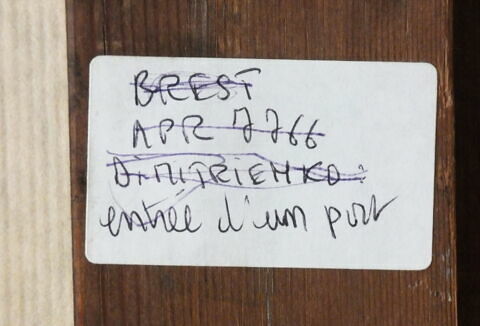 BREST
APR 7766
DIMITRIENKO:
entrée d'un port